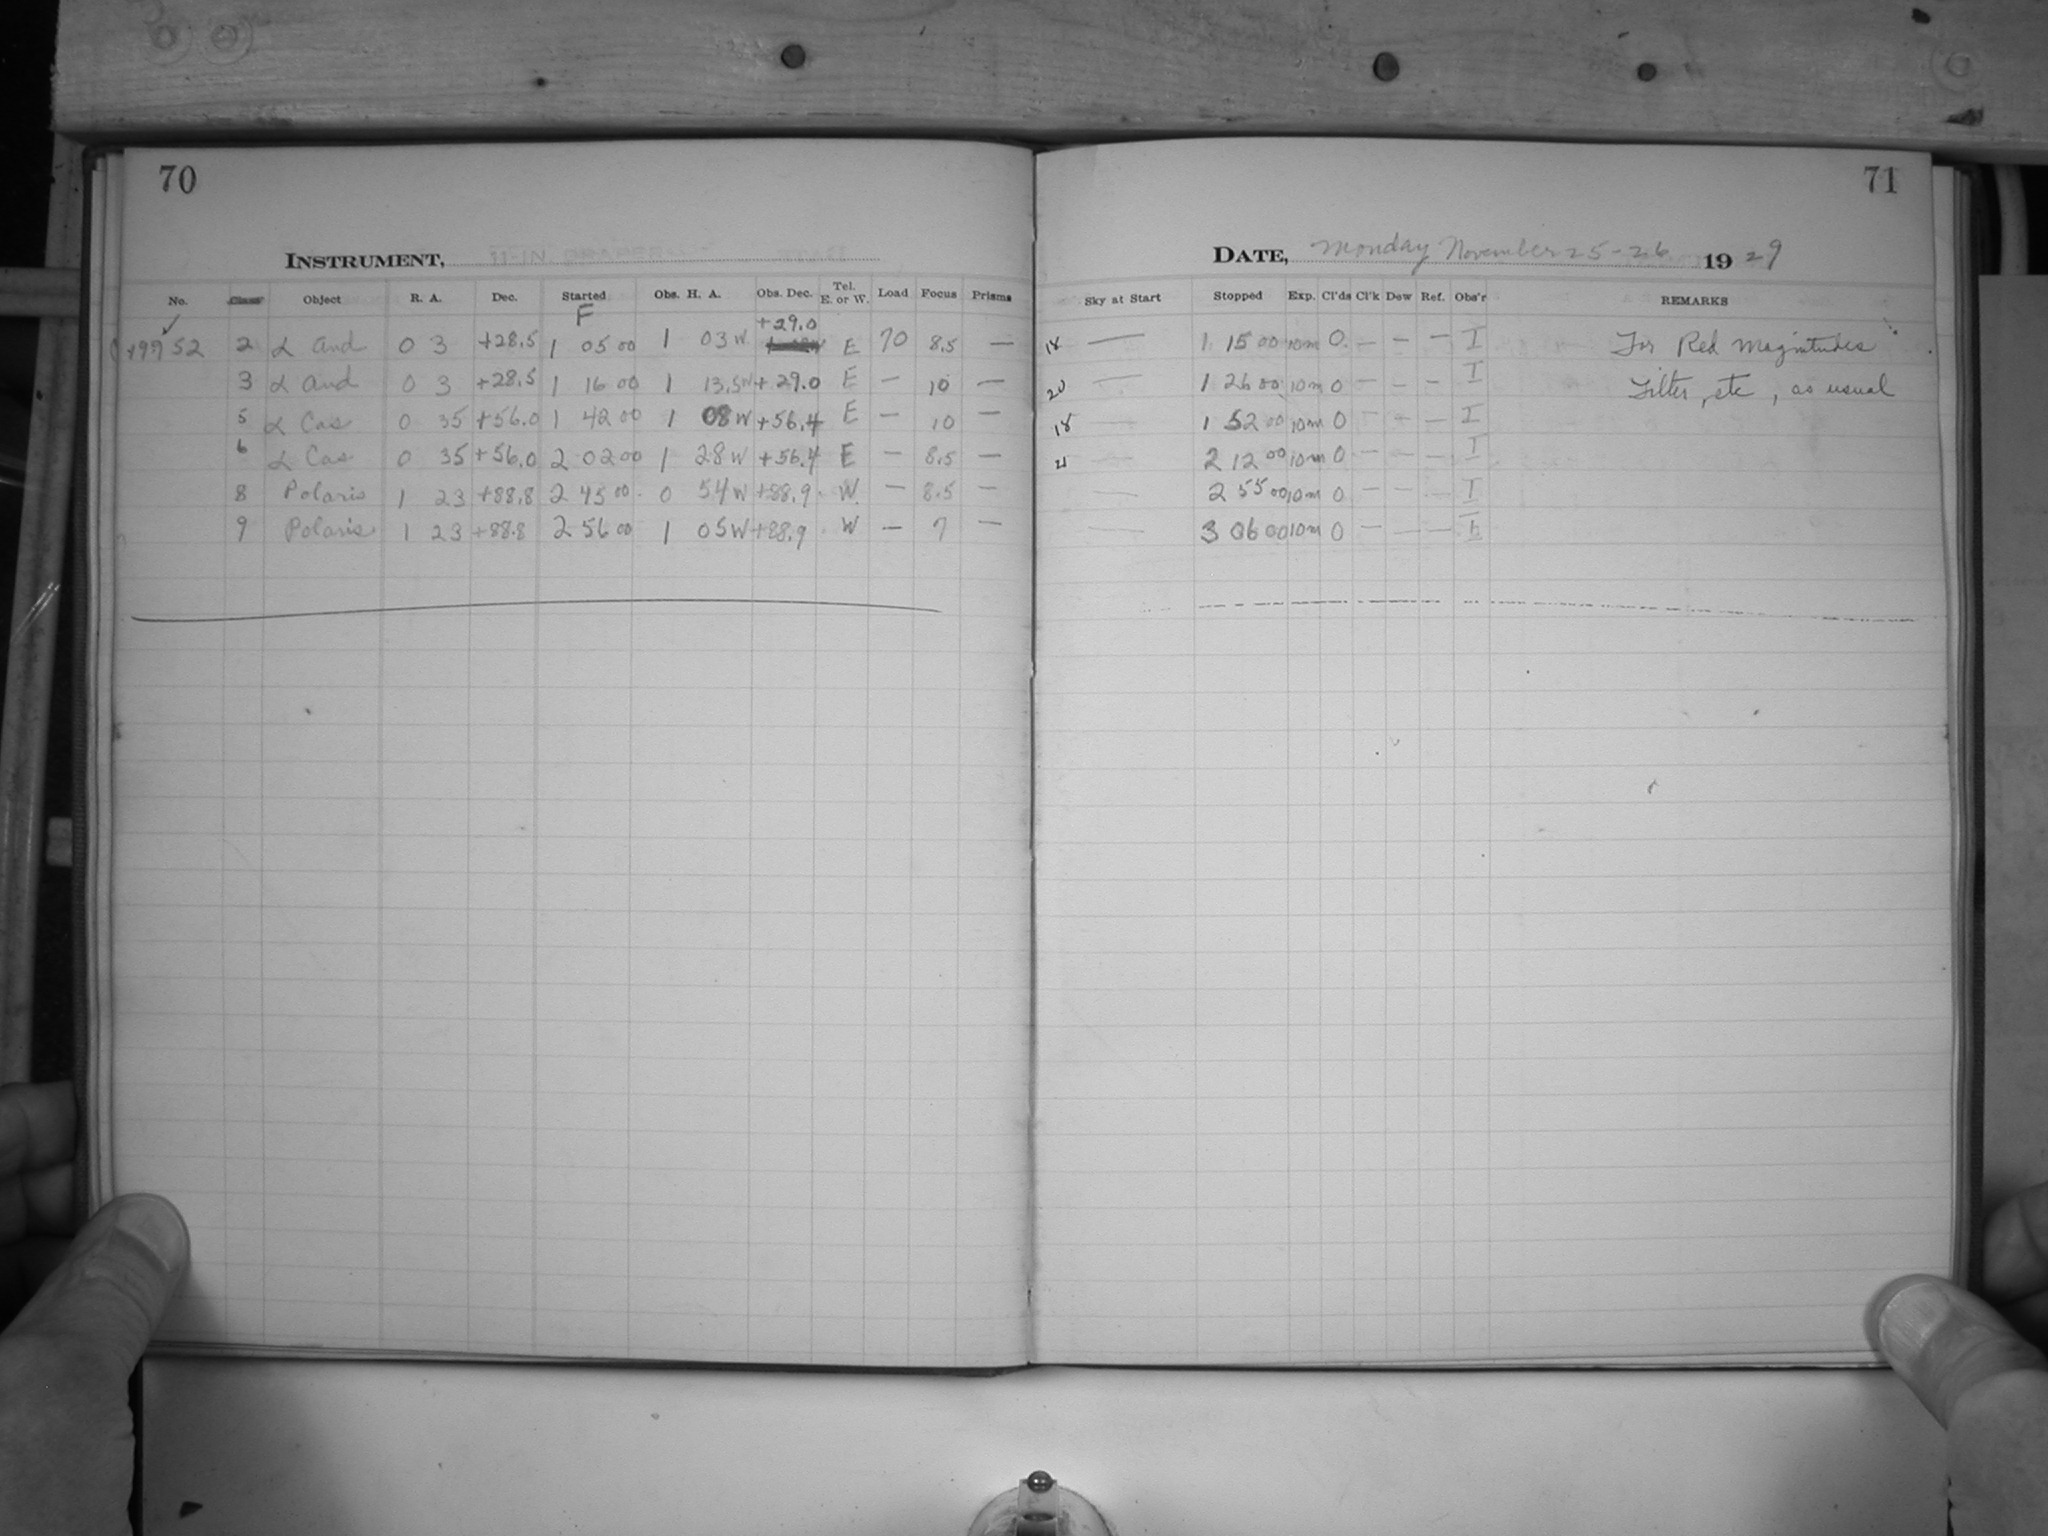 70
INSTRUMENT,
No. Class Object R. A. Dec. Started Obs. H. A. Obs. Dec. Tel. E. or W. Load Focus Prisms
F
+29.0
52 2 α And 0 3 +28.5 1 05 00 1 03 W E 70 8.5 —
3 α And 0 3 +28.5 1 16 00 1 13.5 W +29.0 E — 10 —
5 α Cas 0 35 +56.0 1 42 00 1 08 W +56.4 E — 10 —
6 α Cas 0 35 +56.0 2 02 00 1 28 W +56.4 E — 8.5 —
8 Polaris 1 23 +88.8 2 45 00 0 54 W +88.9 W — 8.5 —
9 Polaris 1 23 +88.8 2 56 00 1 05 W +88.9 W — 7 —
71
DATE, Monday November 25-26 1929
Sky at Start Stopped Exp. Cl'ds Cl'k Dew Ref. Obs'r REMARKS
18 — 1 15 00 10m 0 — — — I For Red Magnitudes
20 — 1 26 00 10m 0 — — — I Filter, etc, as usual
18 — 1 52 00 10m 0 — — — I
21 — 2 12 00 10m 0 — — — I
— 2 55 00 10m 0 — — — I
— 3 06 00 10m 0 — — —